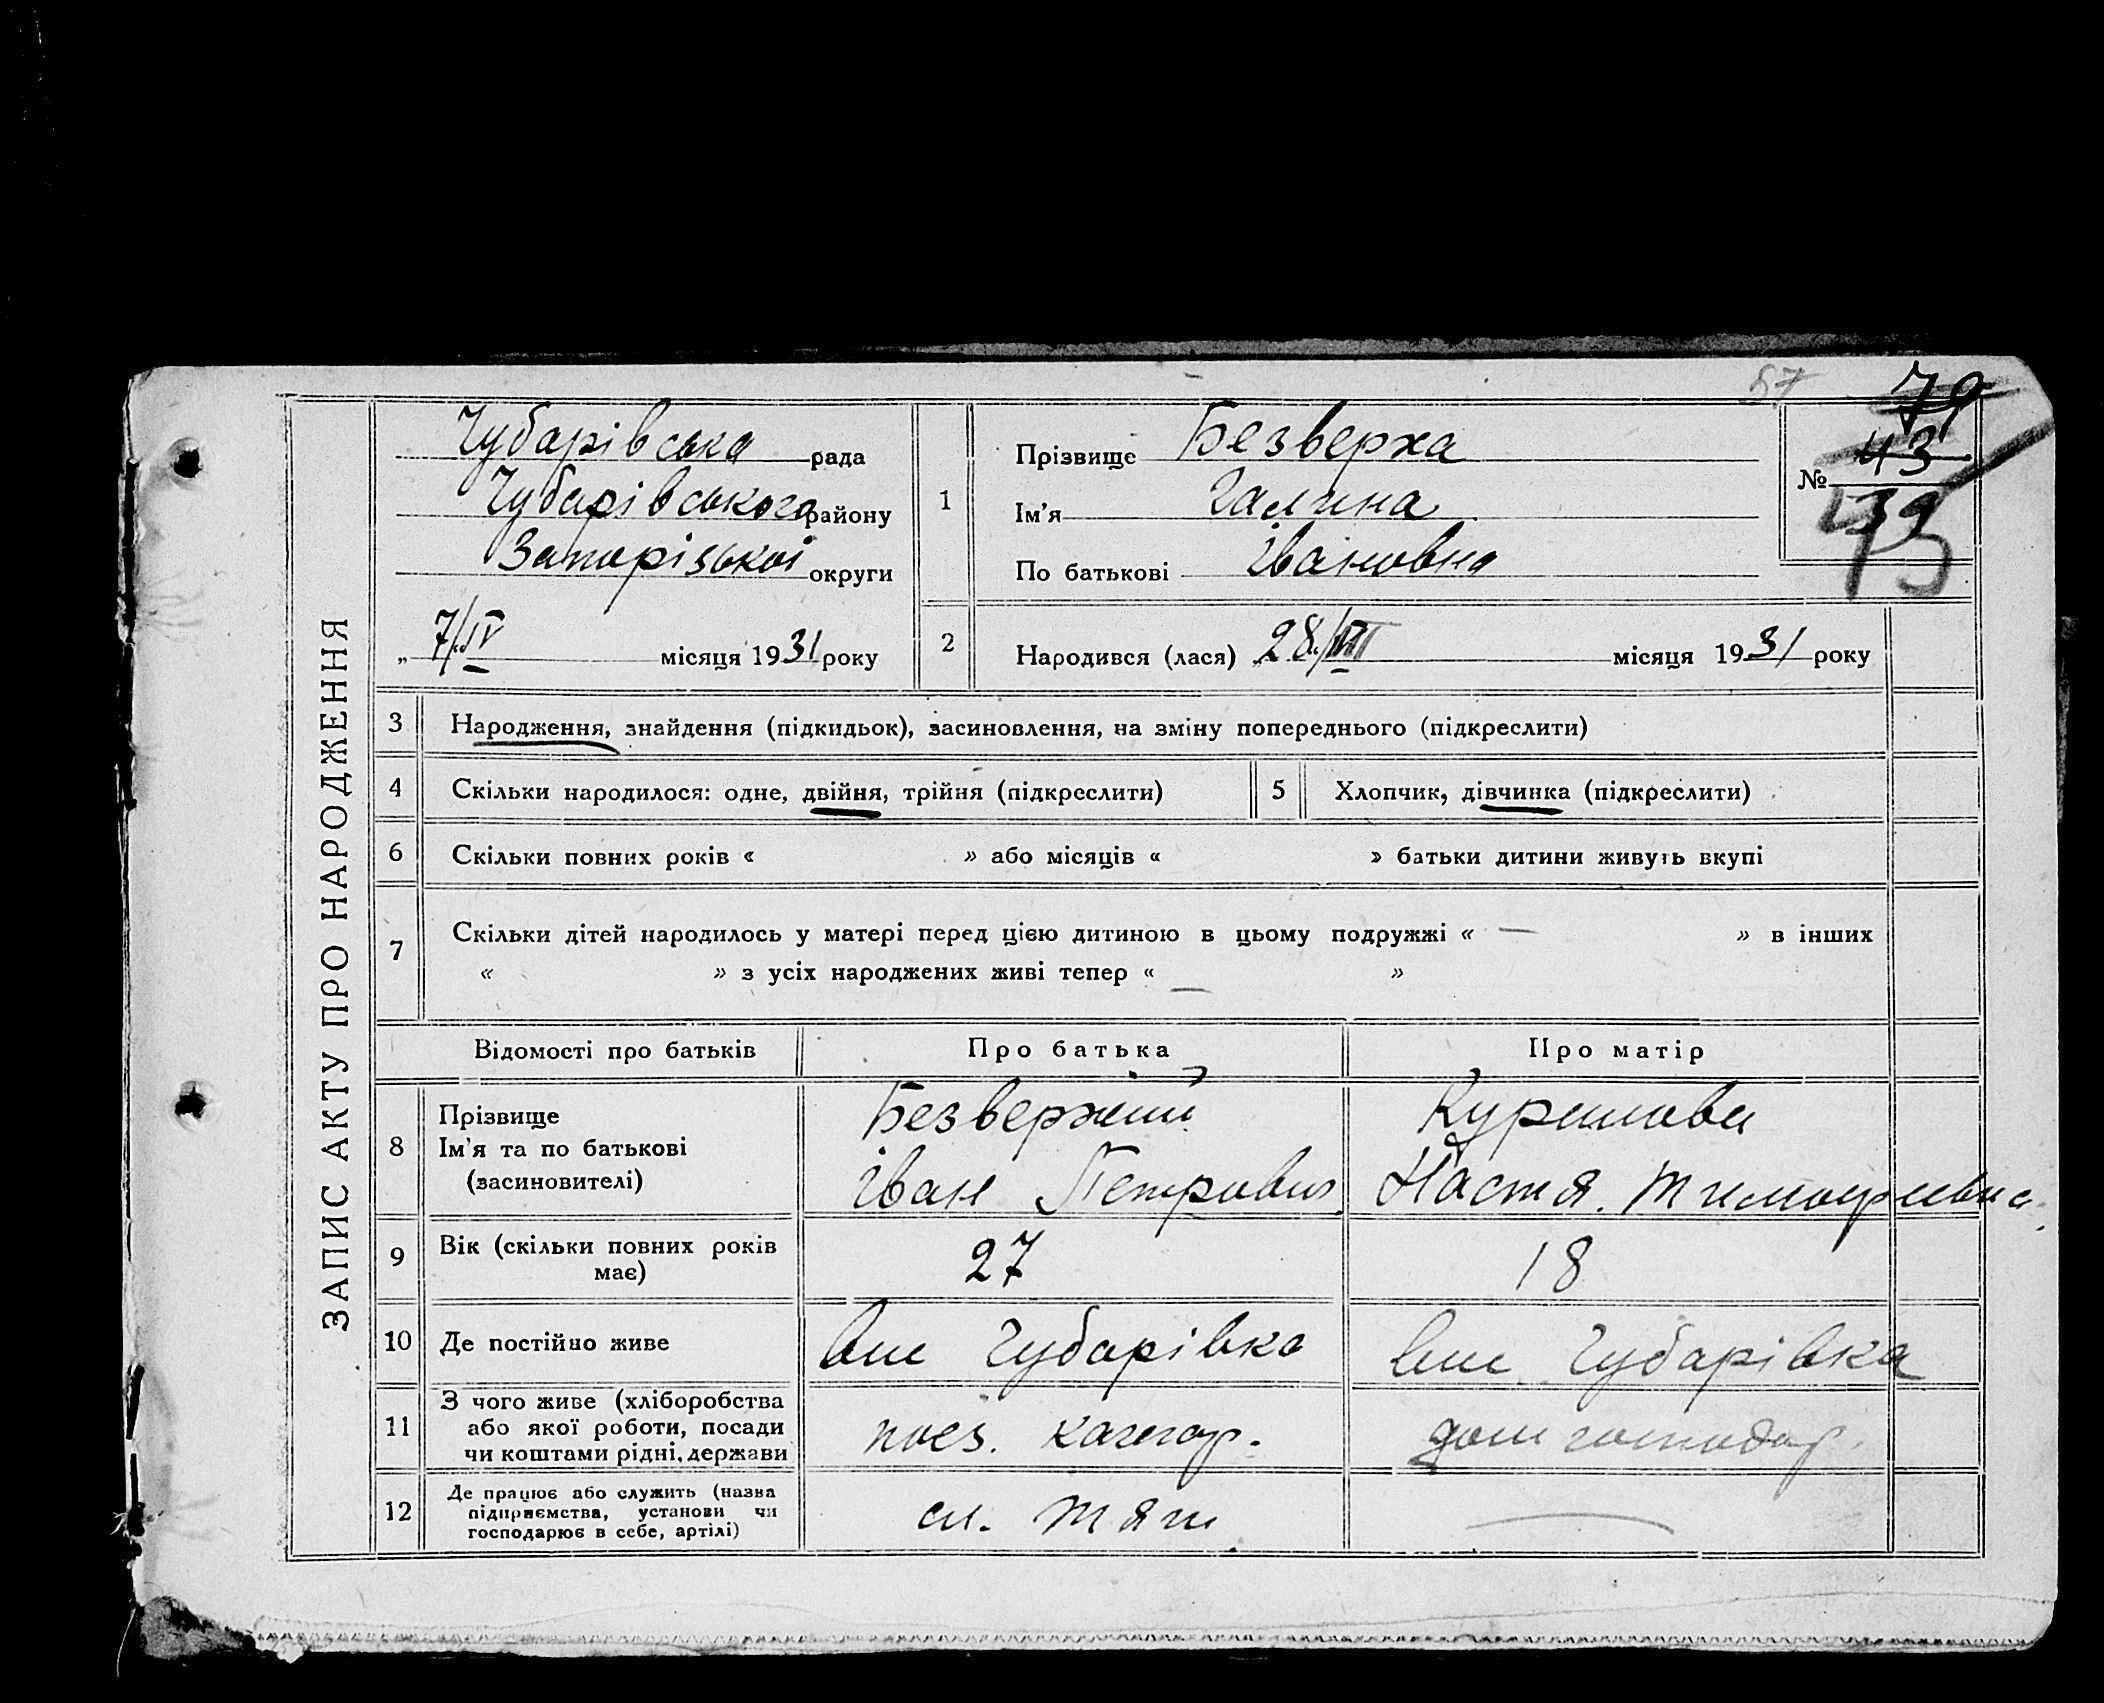 ЗАПИС АКТУ ПРО НАРОДЖЕННЯ
57
79
Чубарівська рада
Чубарівського району
Запорізької округи
„ 7/IV місяця 1931 року
1
Прізвище Безверха
Ім'я Галина
По батькові Івановна
№ 43
39
2
Народився (лася) 28/III місяця 1931 року
3 Народження, знайдення (підкидьок), засиновлення, на зміну попереднього (підкреслити)
4 Скільки народилося: одне, двійня, трійня (підкреслити)
5 Хлопчик, дівчинка (підкреслити)
6 Скільки повних років « » або місяців « » батьки дитини живуть вкупі
7 Скільки дітей народилось у матері перед цією дитиною в цьому подружжі « — » в інших
« » з усіх народжених живі тепер « — »
Відомості про батьків Про батька Про матір
8
Прізвище
Ім'я та по батькові
(засиновителі)
Безверхий
Іван Петрович
Настя Тимофиевна
9
Вік (скільки повних років
має)
27
18
10 Де постійно живе
Чубарівка
Чубарівка
11
З чого живе (хліборобства
або якої роботи, посади
чи коштами рідні, держави
поєз. кочегар.
дом господар.
12
Де працює або служить (назва
підприємства, установи чи
господарює в себе, артілі)
сл. тяги
—